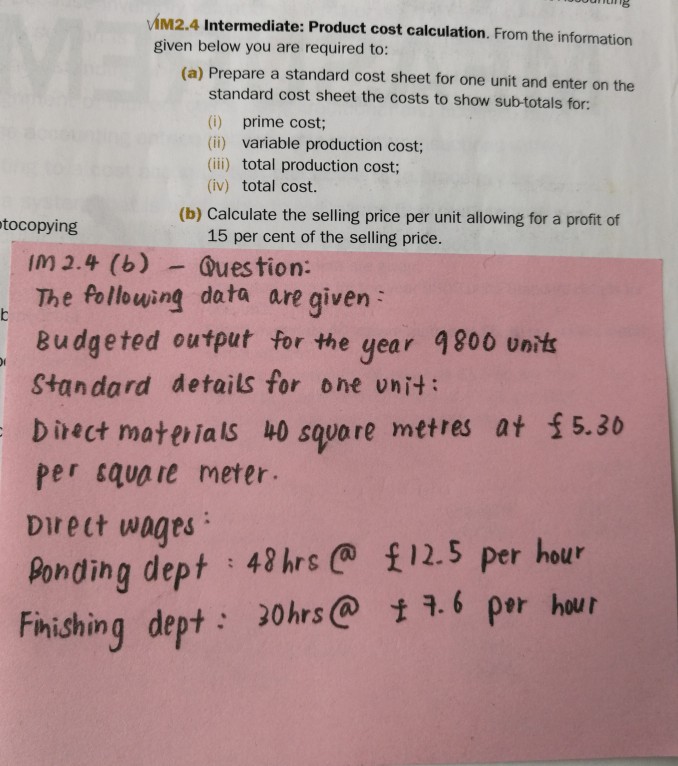 IM2.4 Intermediate: Product cost calculation. From the information
given below you are required to:
(a) Prepare a standard cost sheet for one unit and enter on the
standard cost sheet the costs to show sub-totals for:
(i) prime cost;
(ii) variable production cost;
(iii) total production cost;
(iv) total cost.
(b) Calculate the selling price per unit allowing for a profit of
15 per cent of the selling price.
IM 2.4 (b) - Question:
The following data are given:
Budgeted output for the year 9800 units
Standard details for one unit:
Direct materials 40 square metres at £5.30
per square meter.
Direct wages:
Bonding dept : 48 hrs @ £12.5 per hour
Finishing dept : 30hrs @ £7.6 per hour